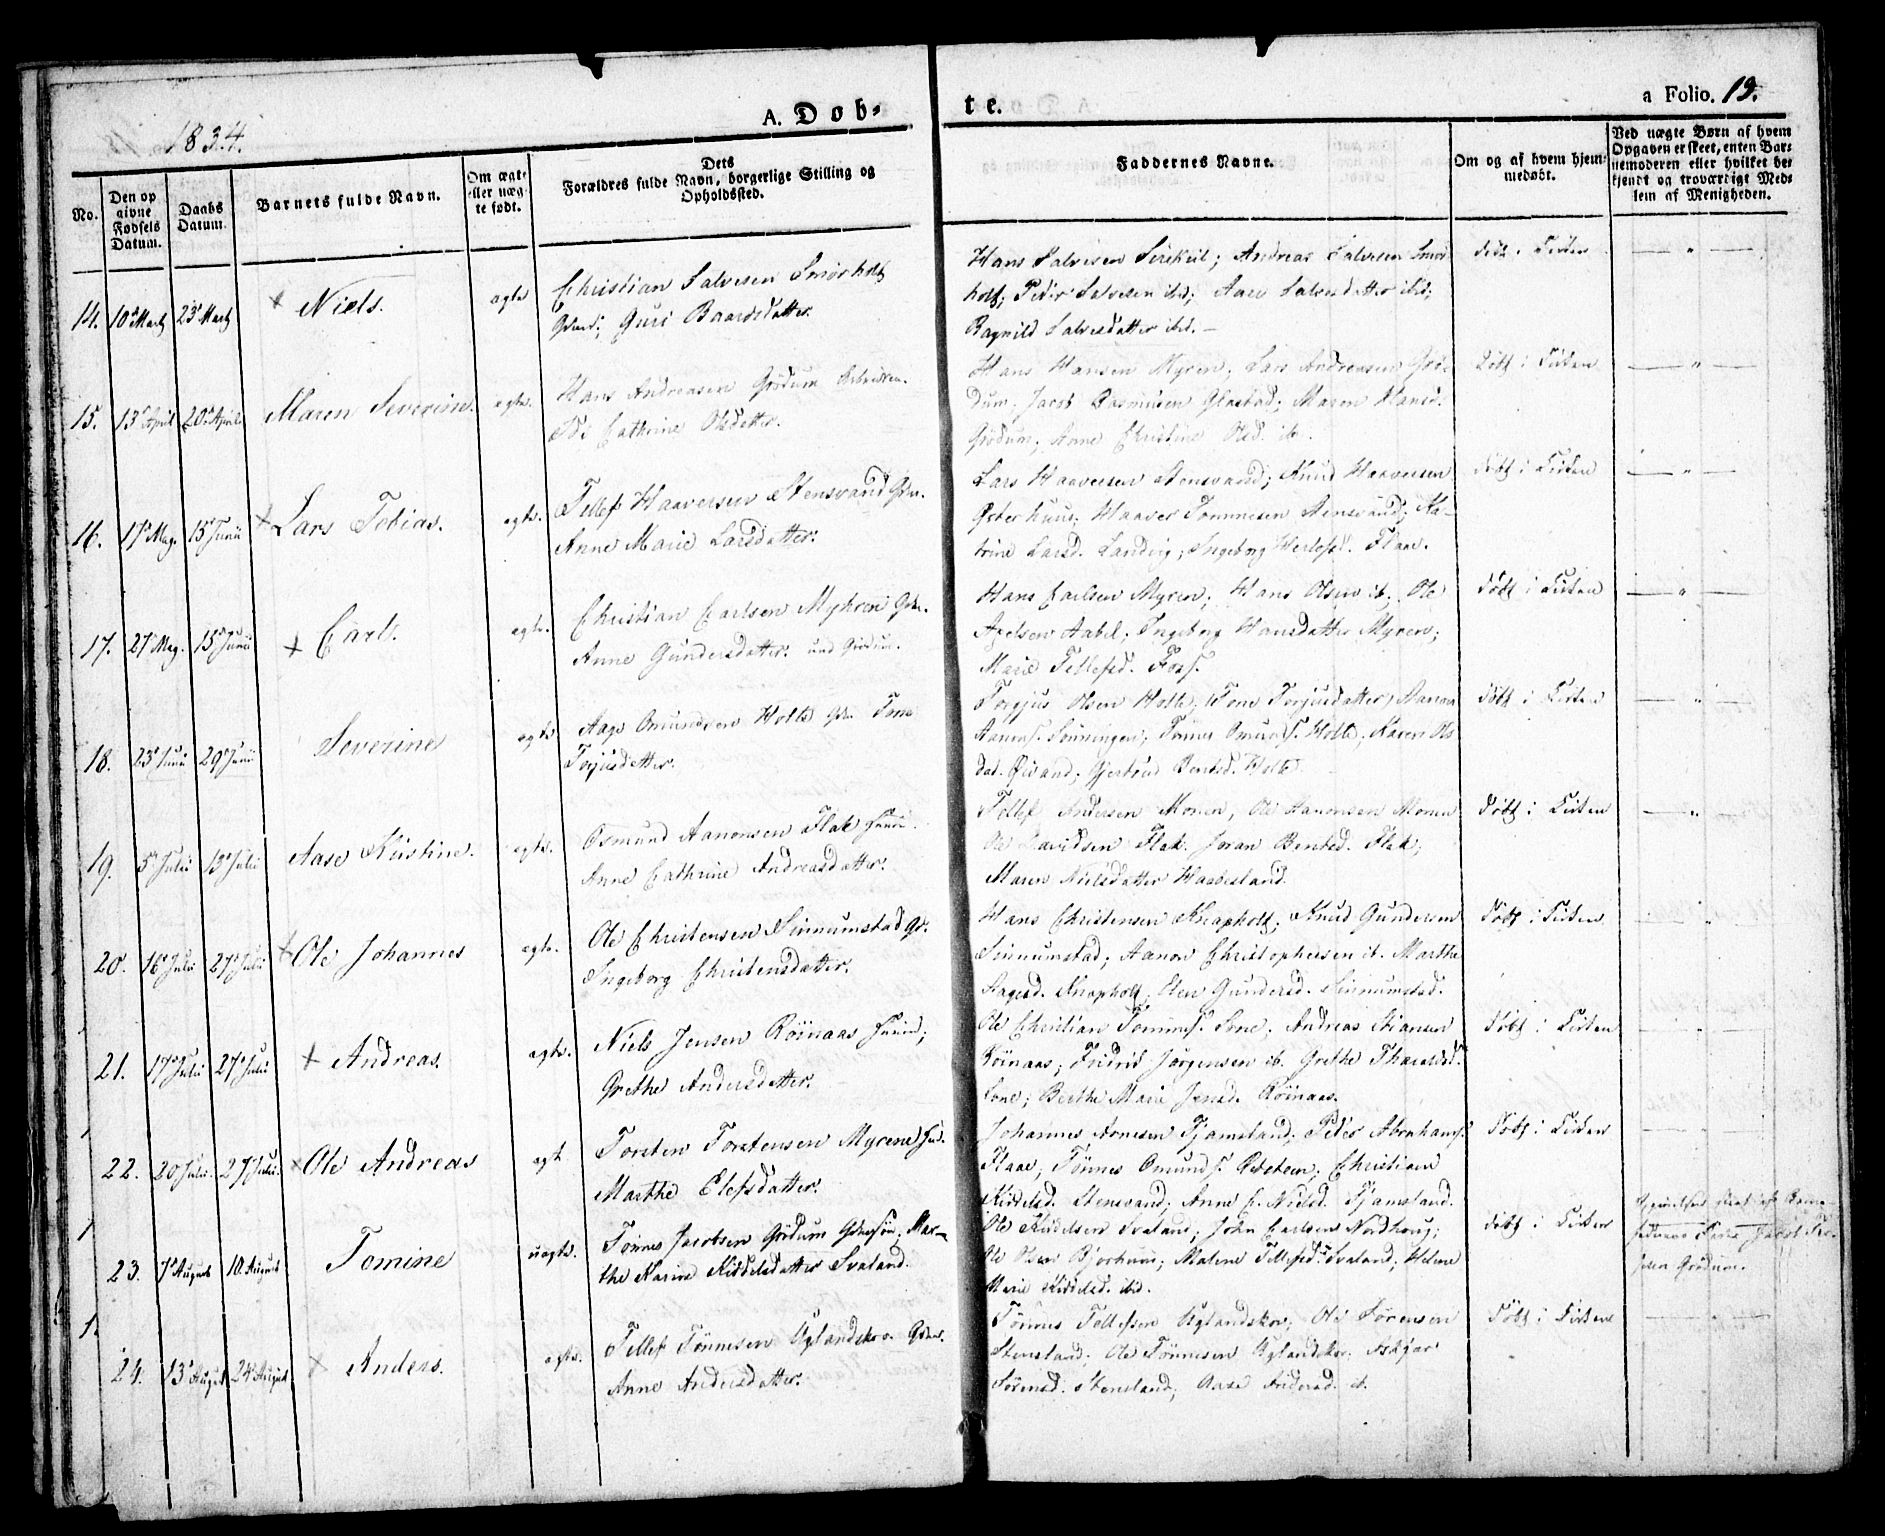 1834.
A. Døb-
te.
a Folio. 19.
No.
Den opgivne Fødsels Datum.
Daabs Datum.
Barnets fulde Navn.
Om ægte eller uægte født.
Dets Forældres fulde Navn, borgerlige Stilling og Opholdssted.
Faddernes Navne.
Om og af hvem hjemmedøbt.
Ved uægte Børn af hvem Opgaven er skeet, enten Barnemoderen eller hvilket bekjendt og troværdigt Medlem af Menigheden.
14. 10de Marts 23de Marts Niels. ægte Christian Salvesen Smørholt
Guri Baardsdatter.
Hans Salvesen Andreas Salvesen Smør
holt; Peder Salvesen ibid; Aase Salvesdatter ibid;
Ragnild Salvesdatter ibid. —
Døbt i Kirken
15. 13de April 20de April Maren Severine. ægte. Hans Andreasen Grødum
Cathrine Olsdatter.
Hans Hansen Myren; Lars Andreasen Grø-
dum. Jacob Rasmusen Maren Hansd.
Grødum; Anne Christine Olsd. ib.
Døbt i Kirken
16. 17de Maj. 15de Junii Lars Tobias. ægte. Tellef Haaversen Stensvand Gdm.
Anne Marie Larsdatter.
Lars Haaversen Stensvand; Knud Haaversen
Østerhuus; Haaver Tommesen Stensvand; Ka-
trine Larsd. Landvig; Ingeborg Flaae.
Døbt i Kirken
17. 27de Maj. 15de Junii Carl. ægte. Christian Carlsen Myhren Gdm.
Anne Gundersdatter. und Grødum.
Hans Carlsen Myren; Hans Olsen ib. Ole
Axelsen Aabel; Ingeborg Hansdatter Myren;
Marie Tellefsd.
Døbt i Kirken
18. 23de Junii 29de Junii Severine ægte Aage Omundsen Holte Gdm. Tone
Terjusdatter.
Torgjus Olsen Holte; Tone Terjusdatter; Aanon
Tønnes Omunds. Holte; Karen Ols
dat. Gjertrud Bentsd. Holte.
Døbt i Kirken
19. 5te Julii 13de Julii Aase Kirstine. ægte. Osmund Aanonsen Flak
Anne Cathrine Andreasdatter.
Tellef Andersen Monen, Ole Aanonsen Monen
Ole Davidsen Flak. Joran Bentsd. Flak;
Maren Nielsdatter Haabesland.
Døbt i Kirken
20. 16de Julii 27de Julii Ole Johannes ægte. Ole Christensen Sinnumstad Gd.
Ingeborg Christensdatter.
Hans Christensen Knapholt; Knud Gundersen
Sinnumstad; Aanon Christophersen ib. Marthe
Aagesd. Knapholt; Elen Gundersd. Sinnumstad.
Døbt i Kirken
21. 17de Julii 27de Julii Andreas. ægte. Niels Jensen Röinaas
Grethe Andersdatter.
Ole Christian Tommes. Andreas
Röinaas; Fridrik Jørgensen ib. Grethe
Berthe Marie Jensd. Röinaas.
Døbt i Kirken
22. 20de Julii. 27de Julii. Ole Andreas ægte Torsten Torstensen Myrene
Marthe Elefsdatter.
Johannes Arnesen Tjamsland; Peder Abrahams.
Flaae; Tönnes Omunds. Christian
Kiddelsd. Stensvand; Anne C. Nielsd. Tjamsland.
Døbt i Kirken
23. 7de August 10. August Tomine uægte. Tönnes Jacobsen Grödum Mar-
the Karine Kiddelsdatter Svaland.
Ole Kiddelsen Svaland; John Carlsen Nordhoug;
Ole Olsen Bjorhuus; Malene Tellefsd. Svaland; Helene
Marie Kiddelsd. ibid.
Døbt i Kirken
Grødum.
24. 13de August 24de August Anders. ægte. Tellef Tönnesen Uglandskro. Gdm.
Anne Andersdatter.
Tönnes Tellefsen Uglandskro; Ole Sörensen
Stensland; Ole Tönnesen Uglandskro.
Sörensd. Stensland; Aase Andersd. ib.
Døbt i Kirken